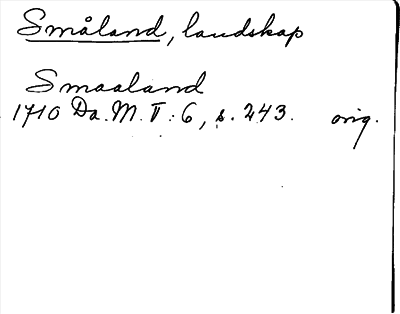 Småland, landskap
Smaaland
1710 Da. M. V: 6, s. 243. orig.